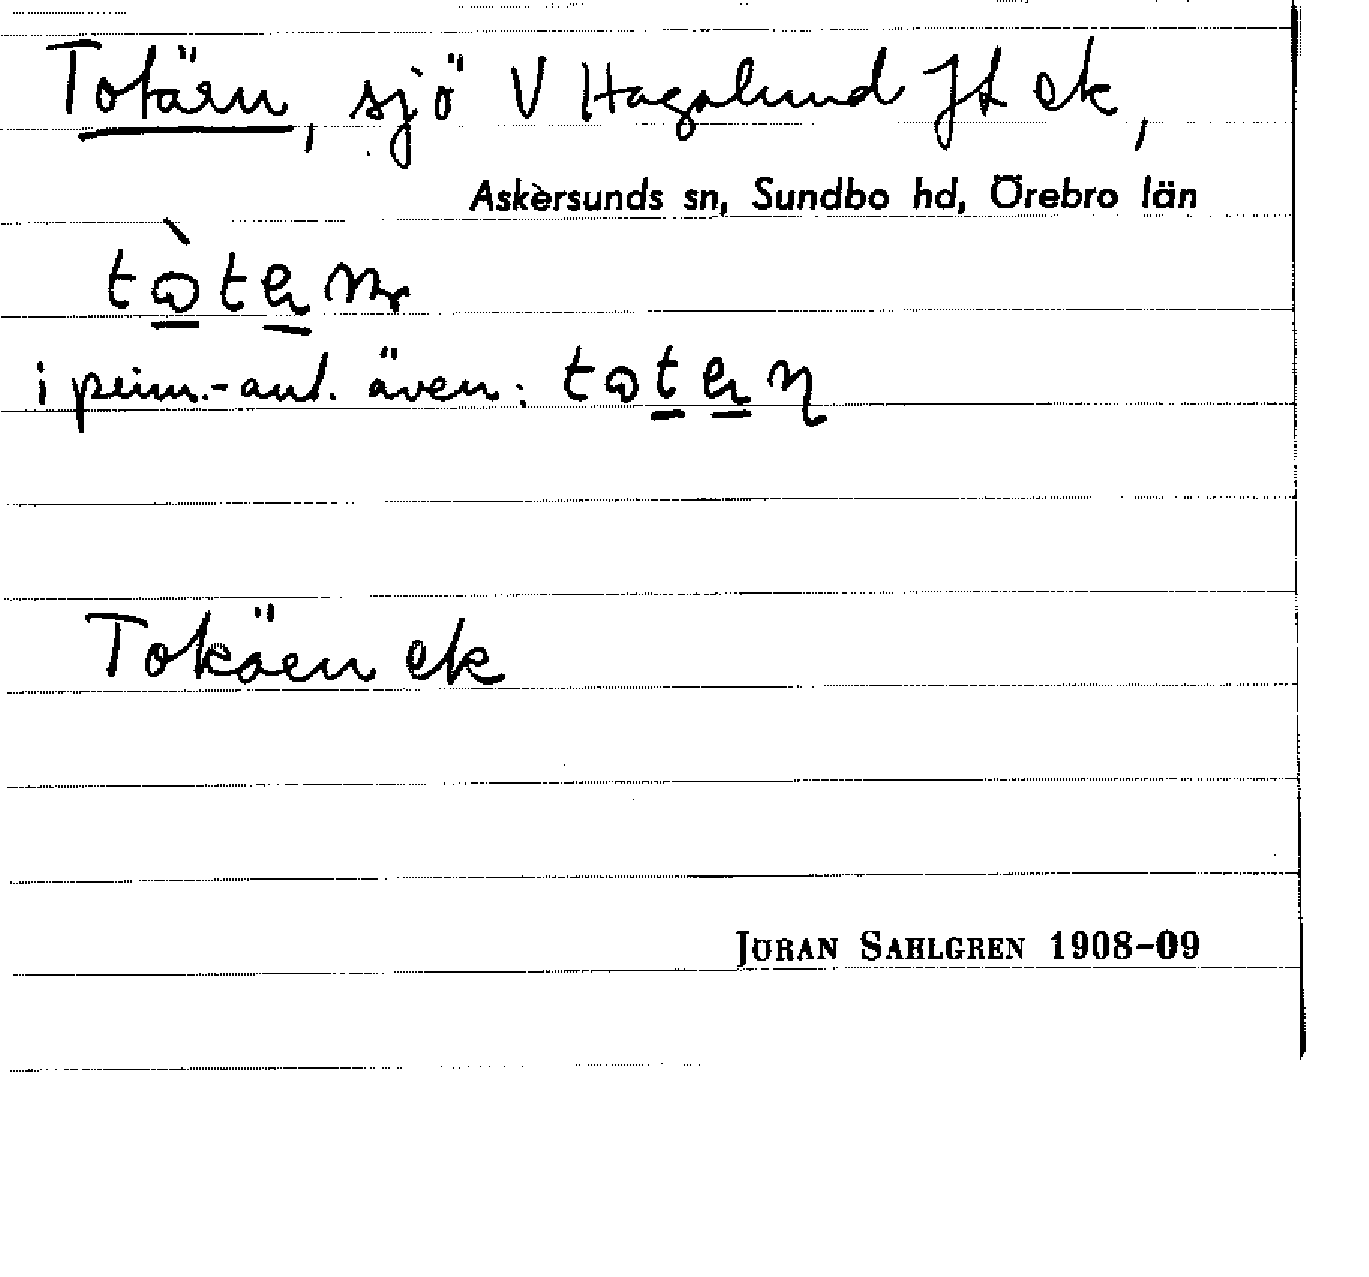 Totärn, sjö V Hagalund JL ek,
Askersunds sn, Sundbo hd, Örebro län
i prim.-ant. även:
Tokäen ek
JÖRAN SAHLGREN 1908-09